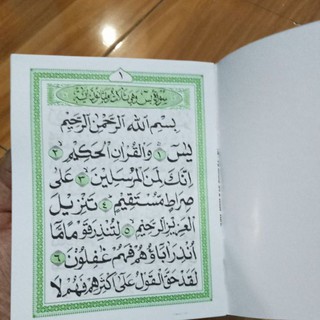 ١
سورة يس وهي ثلاث وثمانون آية
بِسْمِ اللهِ الرَّحْمٰنِ الرَّحِيْمِ
يٰسۤ ١ وَالْقُرْاٰنِ الْحَكِيْمِ ٢
اِنَّكَ لَمِنَ الْمُرْسَلِيْنَ ٣ عَلٰى
صِرَاطٍ مُسْتَقِيْمٍ ٤ تَنْزِيْلَ
الْعَزِيْزِ الرَّحِيْمِ ٥ لِتُنْذِرَ قَوْمًا مَّا
اُنْذِرَ اٰبَاۤؤُهُمْ فَهُمْ غٰفِلُوْنَ ٦
لَقَدْ حَقَّ الْقَوْلُ عَلٰى اَكْثَرِهِمْ فَهُمْ لَا